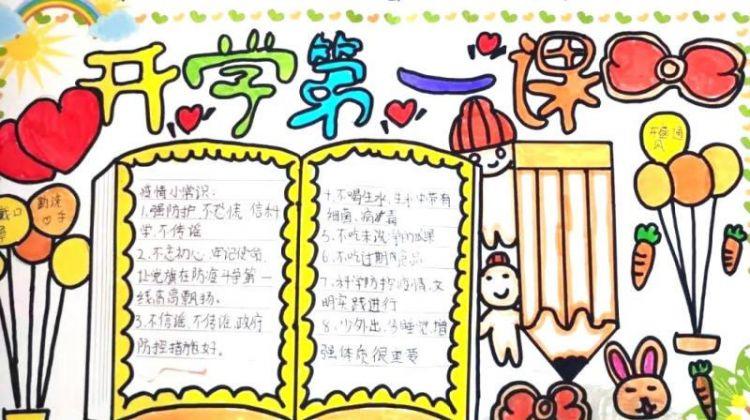 开学第一课
戴口
勤洗
手
开窗通
风
疫情小常识:
1.强防护,不恐慌,信科
学,不传谣
2.不忘初心,牢记使命,
让党旗在防疫斗争第一
线高高飘扬。
3.不信谣,不传谣,政府
防控措施好。
4.不喝生水,生水中带有
细菌,病毒
5.不吃未洗净的瓜果
6.不吃过期食品
7.科学防控疫情,文
明实践进行
8.少外出,多睡觉,增
强体质很重要